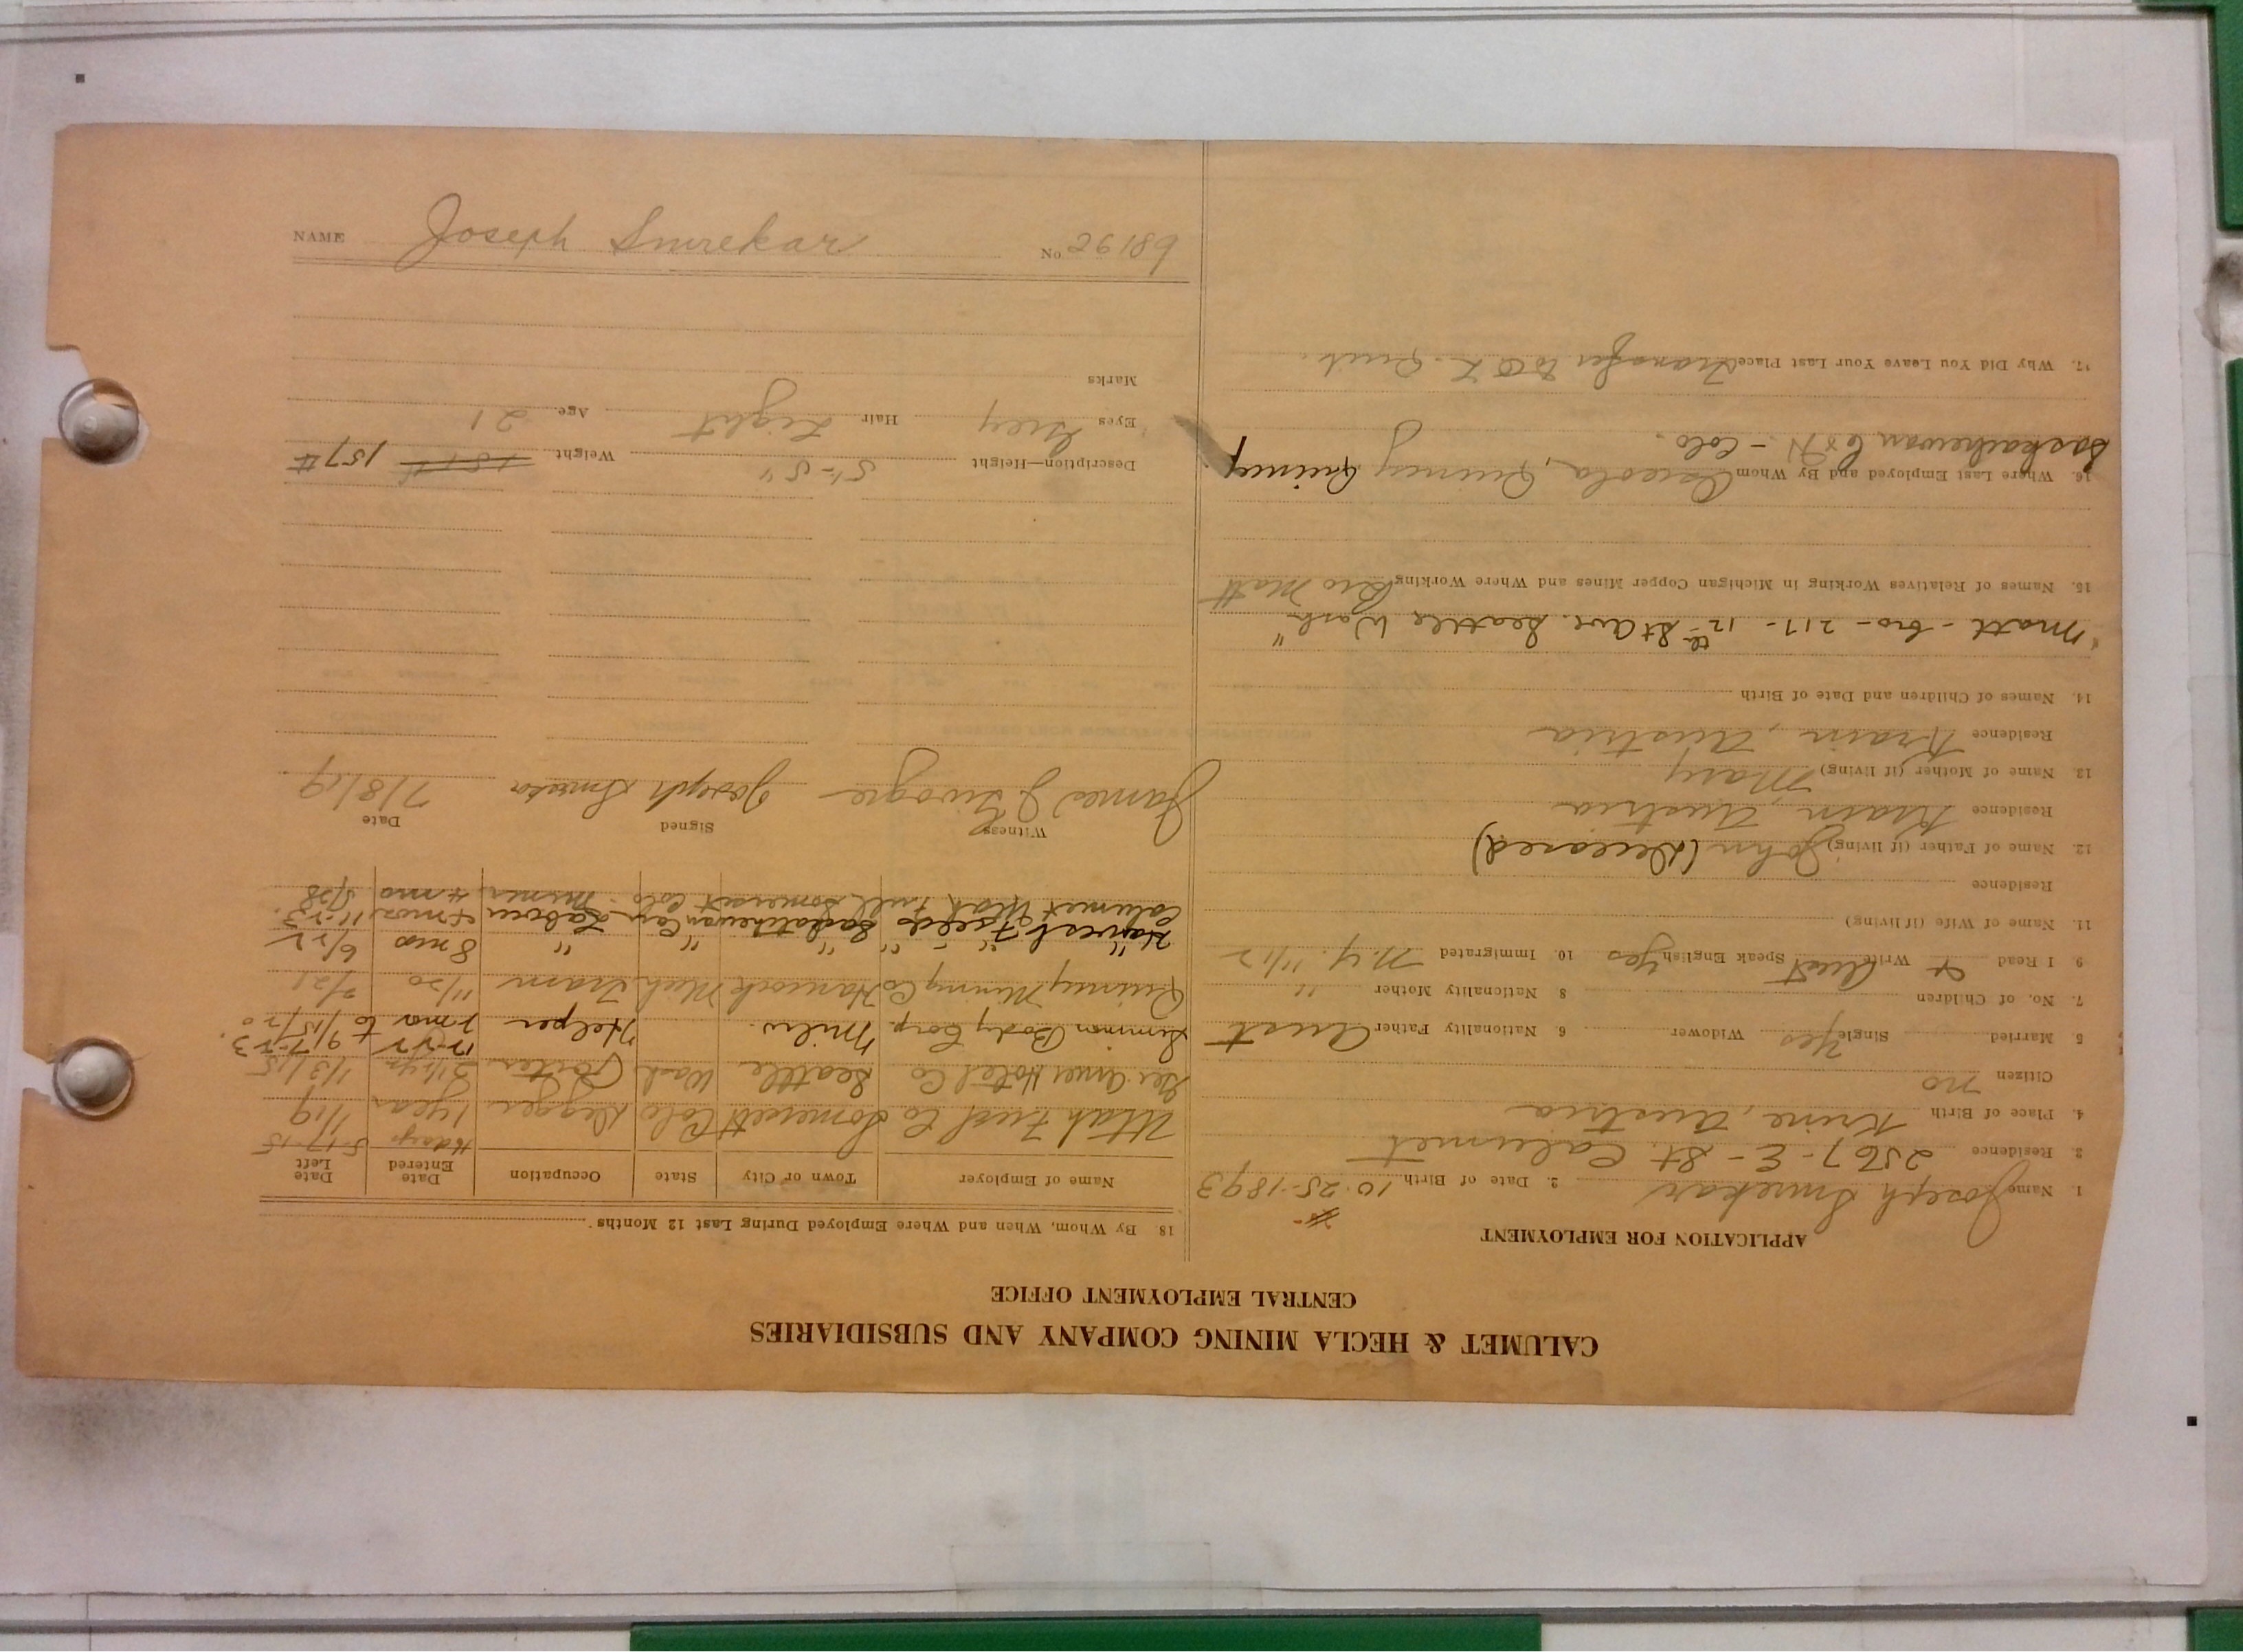 CALUMET & HECLA MINING COMPANY AND SUBSIDIARIES
CENTRAL EMPLOYMENT OFFICE
APPLICATION FOR EMPLOYMENT
1. Name Joseph Smrekar 2. Date of Birth 10-25-1893
3. Residence 2567-E-St. Calumet
4. Place of Birth Krine, Austria
Citizen no
5 Married Single yes Widower 6 Nationality Father Aust
7. No. of Children 8 Nationality Mother "
9 I Read & Write Aust Speak English yes 10. Immigrated N.Y. 11/12
11. Name of Wife (if living)
Residence
12. Name of Father (if living) John (Deceased)
Residence Krain, Austria
13. Name of Mother (if living) Mary
Residence Krain, Austria
14. Names of Children and Date of Birth
"Matt - bro - 217 - 12th St Ave. Seattle Wash"
15. Names of Relatives Working in Michigan Copper Mines and Where Working Bro Matt
16. Where Last Employed and By Whom Osceola, Quincy Quincy
Saskachewan C&H. - Colo.
17. Why Did You Leave Your Last Place Transfer to Quit.
18. By Whom, When and Where Employed During Last 12 Months
Name of Employer Town or City State Occupation Date Entered Date Left
16 days 5-17-15
Utah Fuel Co Somerset Colo Digger 1 year 1/19
Hotel Co Seattle Wash Porter 2 1/2 yrs 1/3/15
12-22 7-23
Simmon Body Corp. Milw. Helper 2 mos to 9/15/20
Quincy Mining Co Hancock Mich Tram 11/20 2/21
" " " " " 8 mo 6/22
Harvest Fields - Saskatchewan Can Labour 4 mos 11-23.
Calumet Utah Fuel Somerset Colo - Miner 4 mo 5/28
Witness Signed Date
James J Joseph Smrekar 7/8/19
Description—Height 5'-5" Weight 151# 157#
Eyes Grey Hair Light Age 21
Marks
NAME Joseph Smrekar No 26189